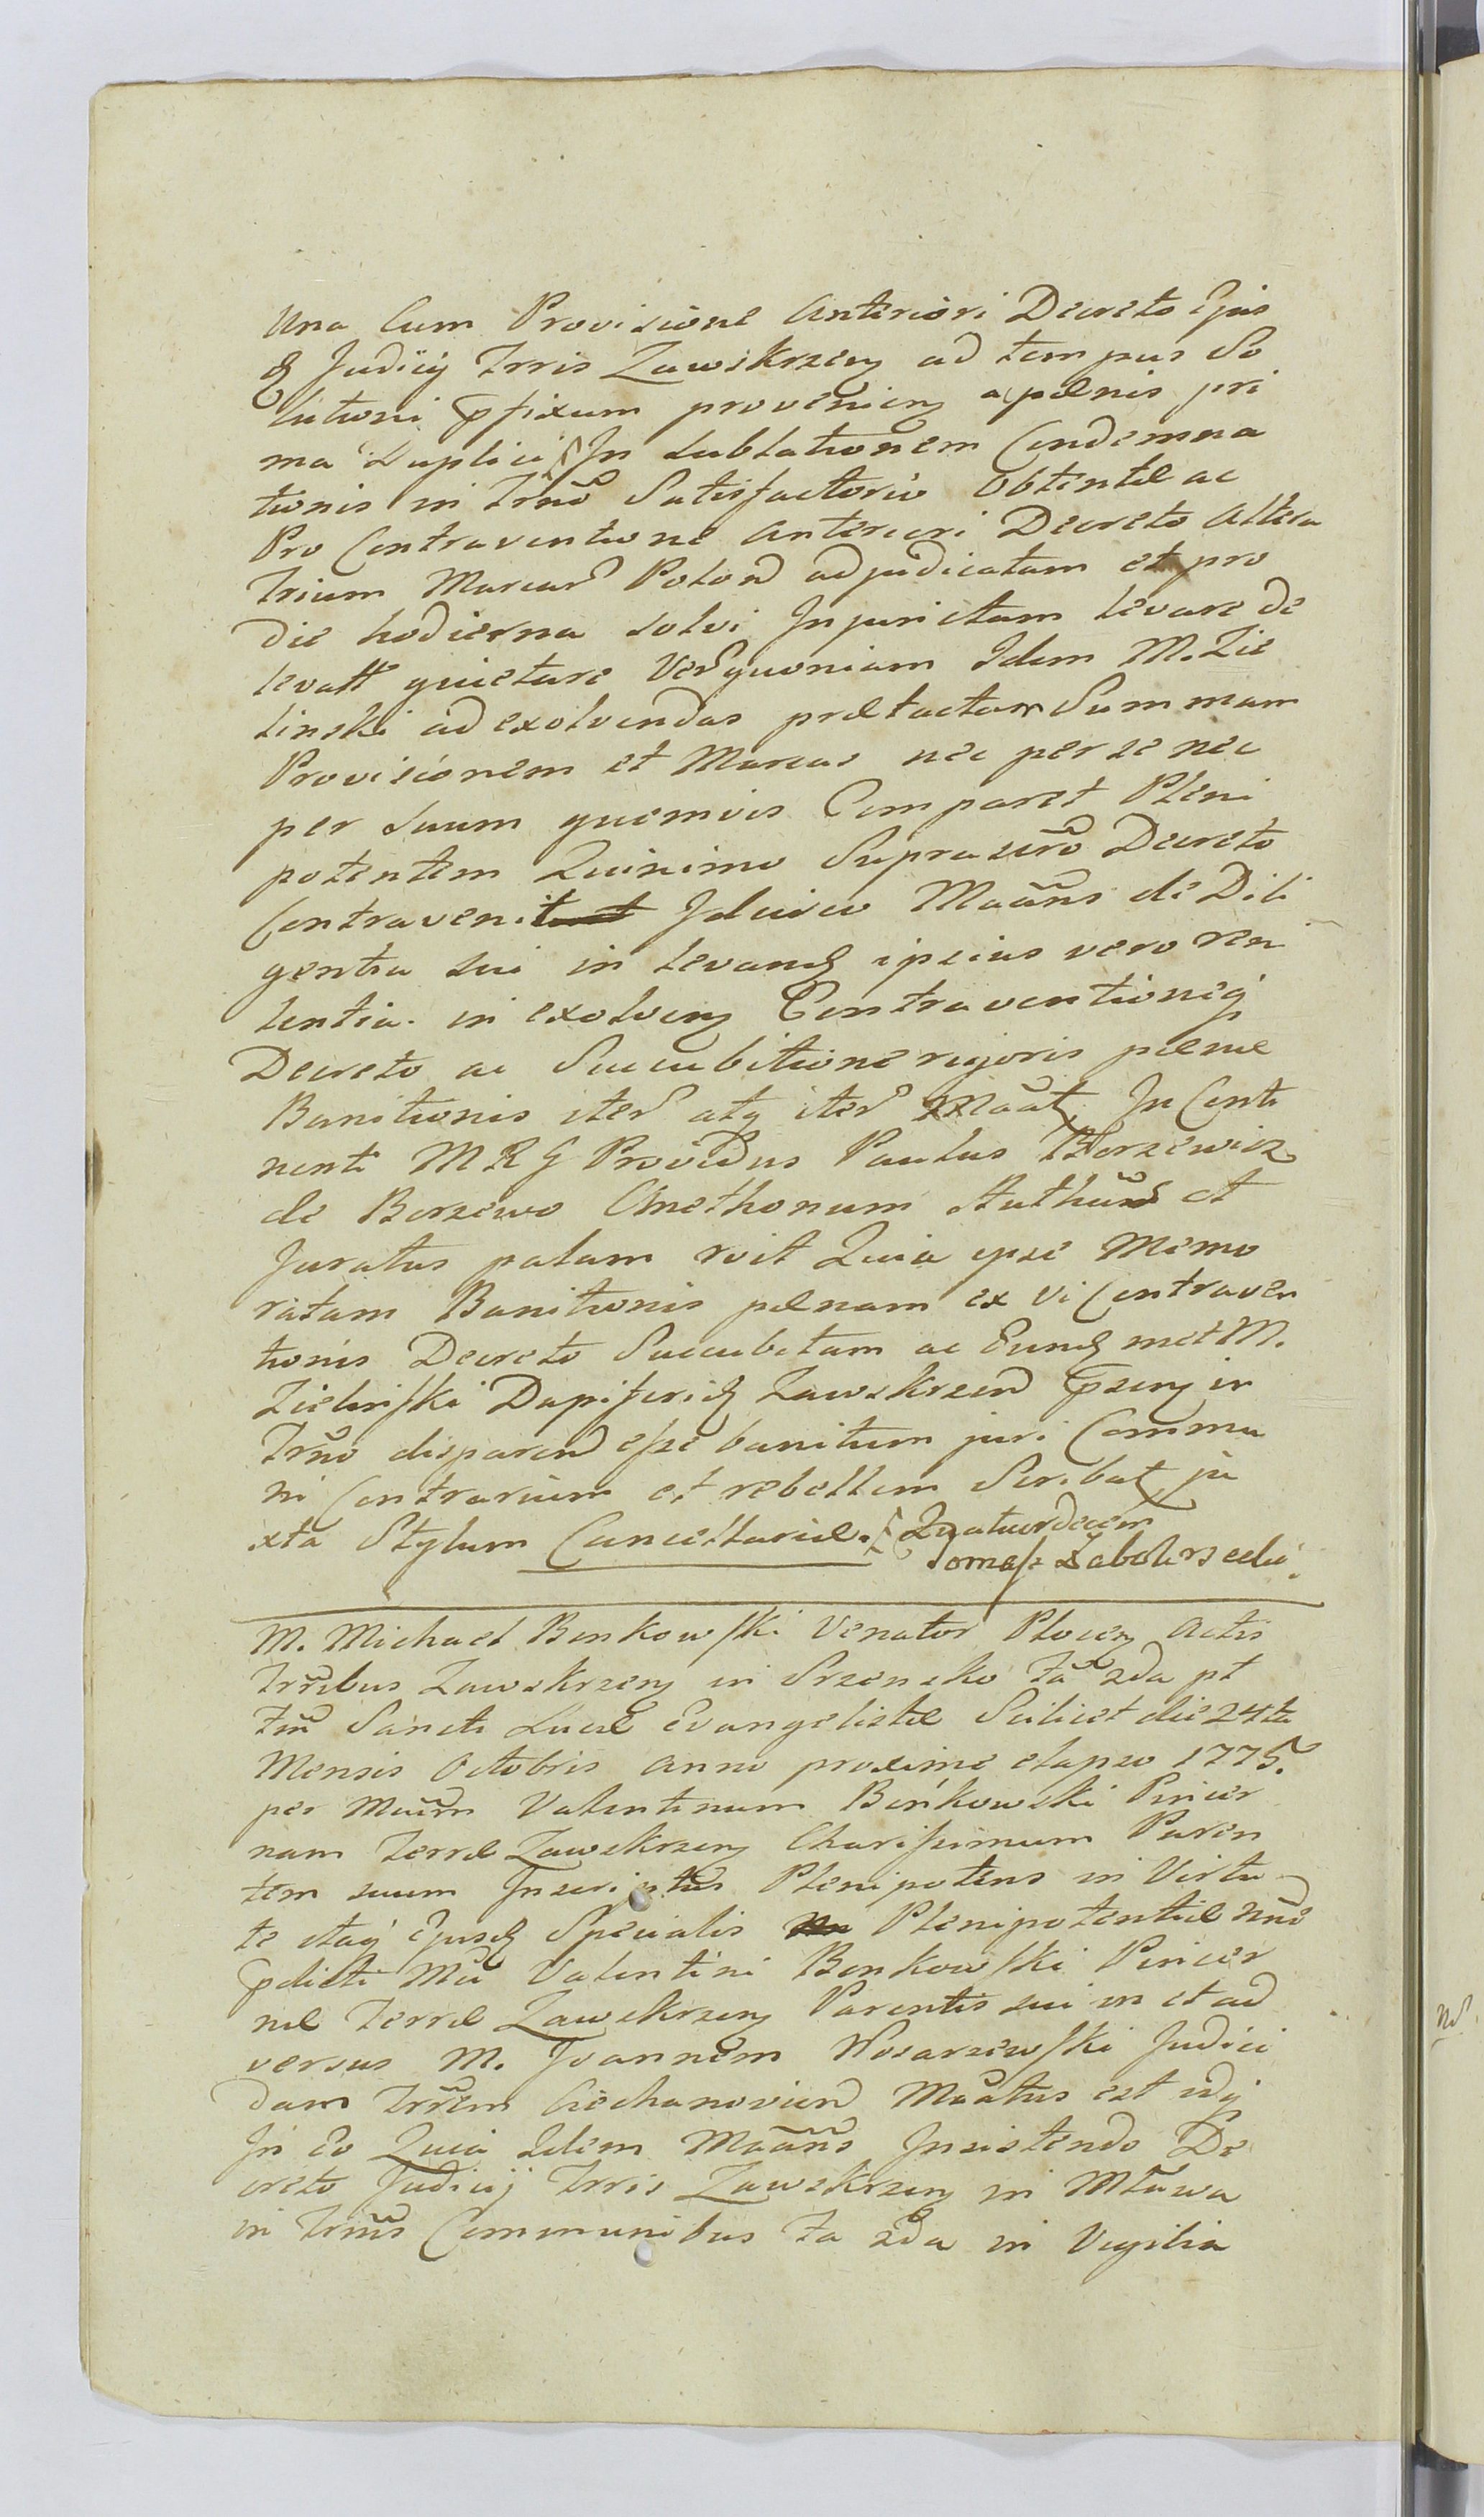 Una Cum Provisione Anteriori Decreto Ejus
q Judicij Trris Zawskrzen ad tempus So
lutioni pfixum provenien a paenis pri
ma duplici In Sublationem Condemna
tionis in Trno Satisfactorio Obtentae ac
Pro Contraventione Anteriori Decreto altera
trium Marcar Polon adjudicatam et pro
die hodierna solvi Injunctam levare de
levatt quietare Ver quoniam Idem M. Zie
linski ad exolvendas praetactam Summam
Provisionem et Marcas nec per se nec
per Suum quemvis Comparet Pleni
potentem Quinimo Suprascro Decreto
Contravenit Idcirco Maans de Dili
gentia sui in levand ipsius vero ren
tentia in exolven Contraventioneq
Decreto ac Succubitione rigoris paenae
Banitionis iter atq iter Maat In Conti
nenti M R G Providus Paulus Borzewicz
de Borzewo Cmethonum Authus et
Juratus palam roit Quia ipse Memo
ratam Banitionis paenam ex vi Contraven
tionis Decreto Succubitam ac Eund met M.
Zielinski Dapiferid Zawskrzen pzen in
Trno disparen esse banitum juri Commu
ni Contrarium et rebellem Scribat ju
xta Stylum Cancellariae. Quatuordecem
Tomasz
M. Michael Bonkowski Venator Plocen Actis
Trribus Zawskrzen in Srzensko fa 2da pt
fm Sancti Lucae Evangelistae Scilicet die 24ta
Mensis Octobris anno proxime elapso 1775.
per Mcum Valentinum Bonkowski Pincer
nam Terrae Zawskrzen Charissimum Paren
tem suum Inscriptus Plenipotens in Virtu
te itaq Ejusd Specialis Plenipotentiae nno
pdicti Mci Valentini Bonkowski Pincer
nae Terrae Zawskrzen Parentis sui in et ad
versus M. Joannem Kosarzewski Judici
dam Trrem Ciechanovien Maatus est idq
In Eo Quia Idem Maans Insistendo De
creto Judicij Trris Zawskrzen in Mlawa
in Trnis Communibus fa 2da in Vigilia